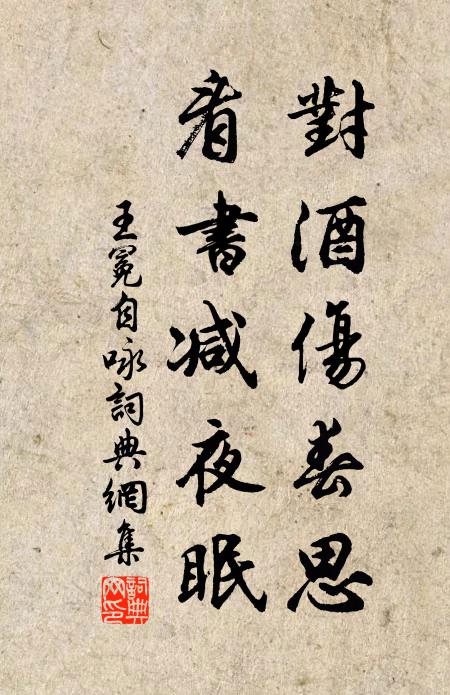 對酒傷春思
看書减夜眠
王冕自咏詞典網集
詞典
网印